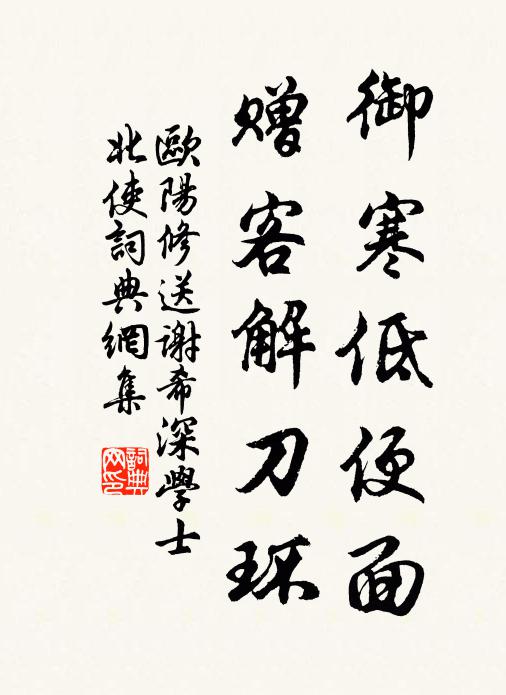 御寒低便面
贈客解刀环
歐陽修送謝希深學士
北使詞典網集
詞典網印